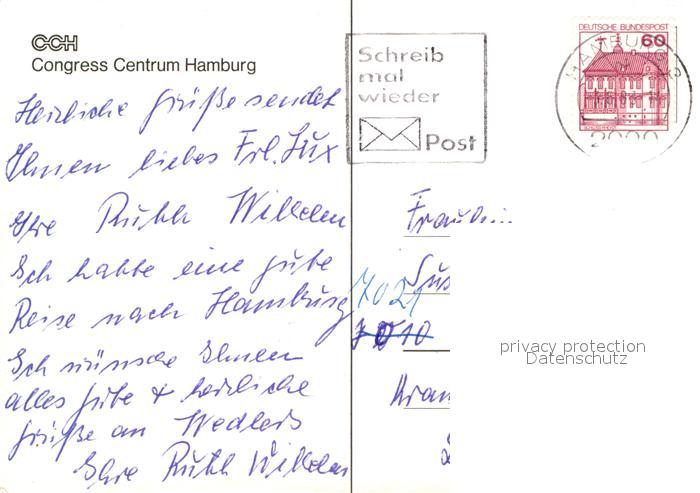 CCH
Congress Centrum Hamburg
Herzliche Grüße sendet
Ihnen liebes Frl. Lux
Ihre Ruth Willelen
Ich hatte eine gute
Reise nach Hamburg
Ich wünsche Ihnen
alles Gute + herzliche
Grüße an Wedlers
Ihre Ruth
Schreib
mal
wieder
Post
DEUTSCHE BUNDESPOST
60
HAMBURG
2000
Fräulein
7021
7010
privacy protection
Datenschutz